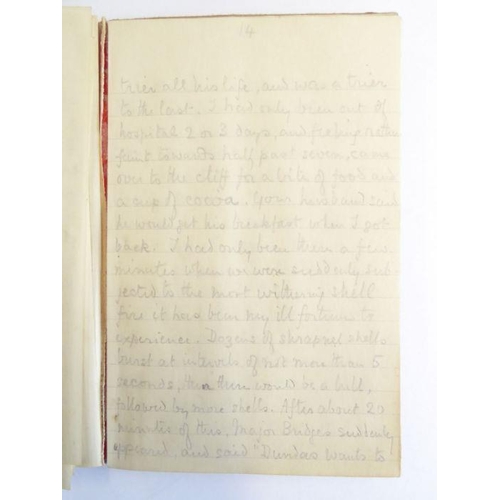 14
tries all his life, and was a trier
to the last. I had only been out of
hospital 2 or 3 days, and feeling rather
faint towards half past seven, came
over to the cliff for a bite of food and
a cup of cocoa. Your husband said
he would get his breakfast when I got
back. I had only been there a few
minutes when we were suddenly sub-
jected to the most withering shell
fire it has been my ill fortune to
experience. Dozens of shrapnel shells
burst at intervals of not more than 5
seconds, then there would be a lull,
followed by more shells. After about 20
minutes of this, Major Bridges suddenly
appeared, and said "Dundas wants to